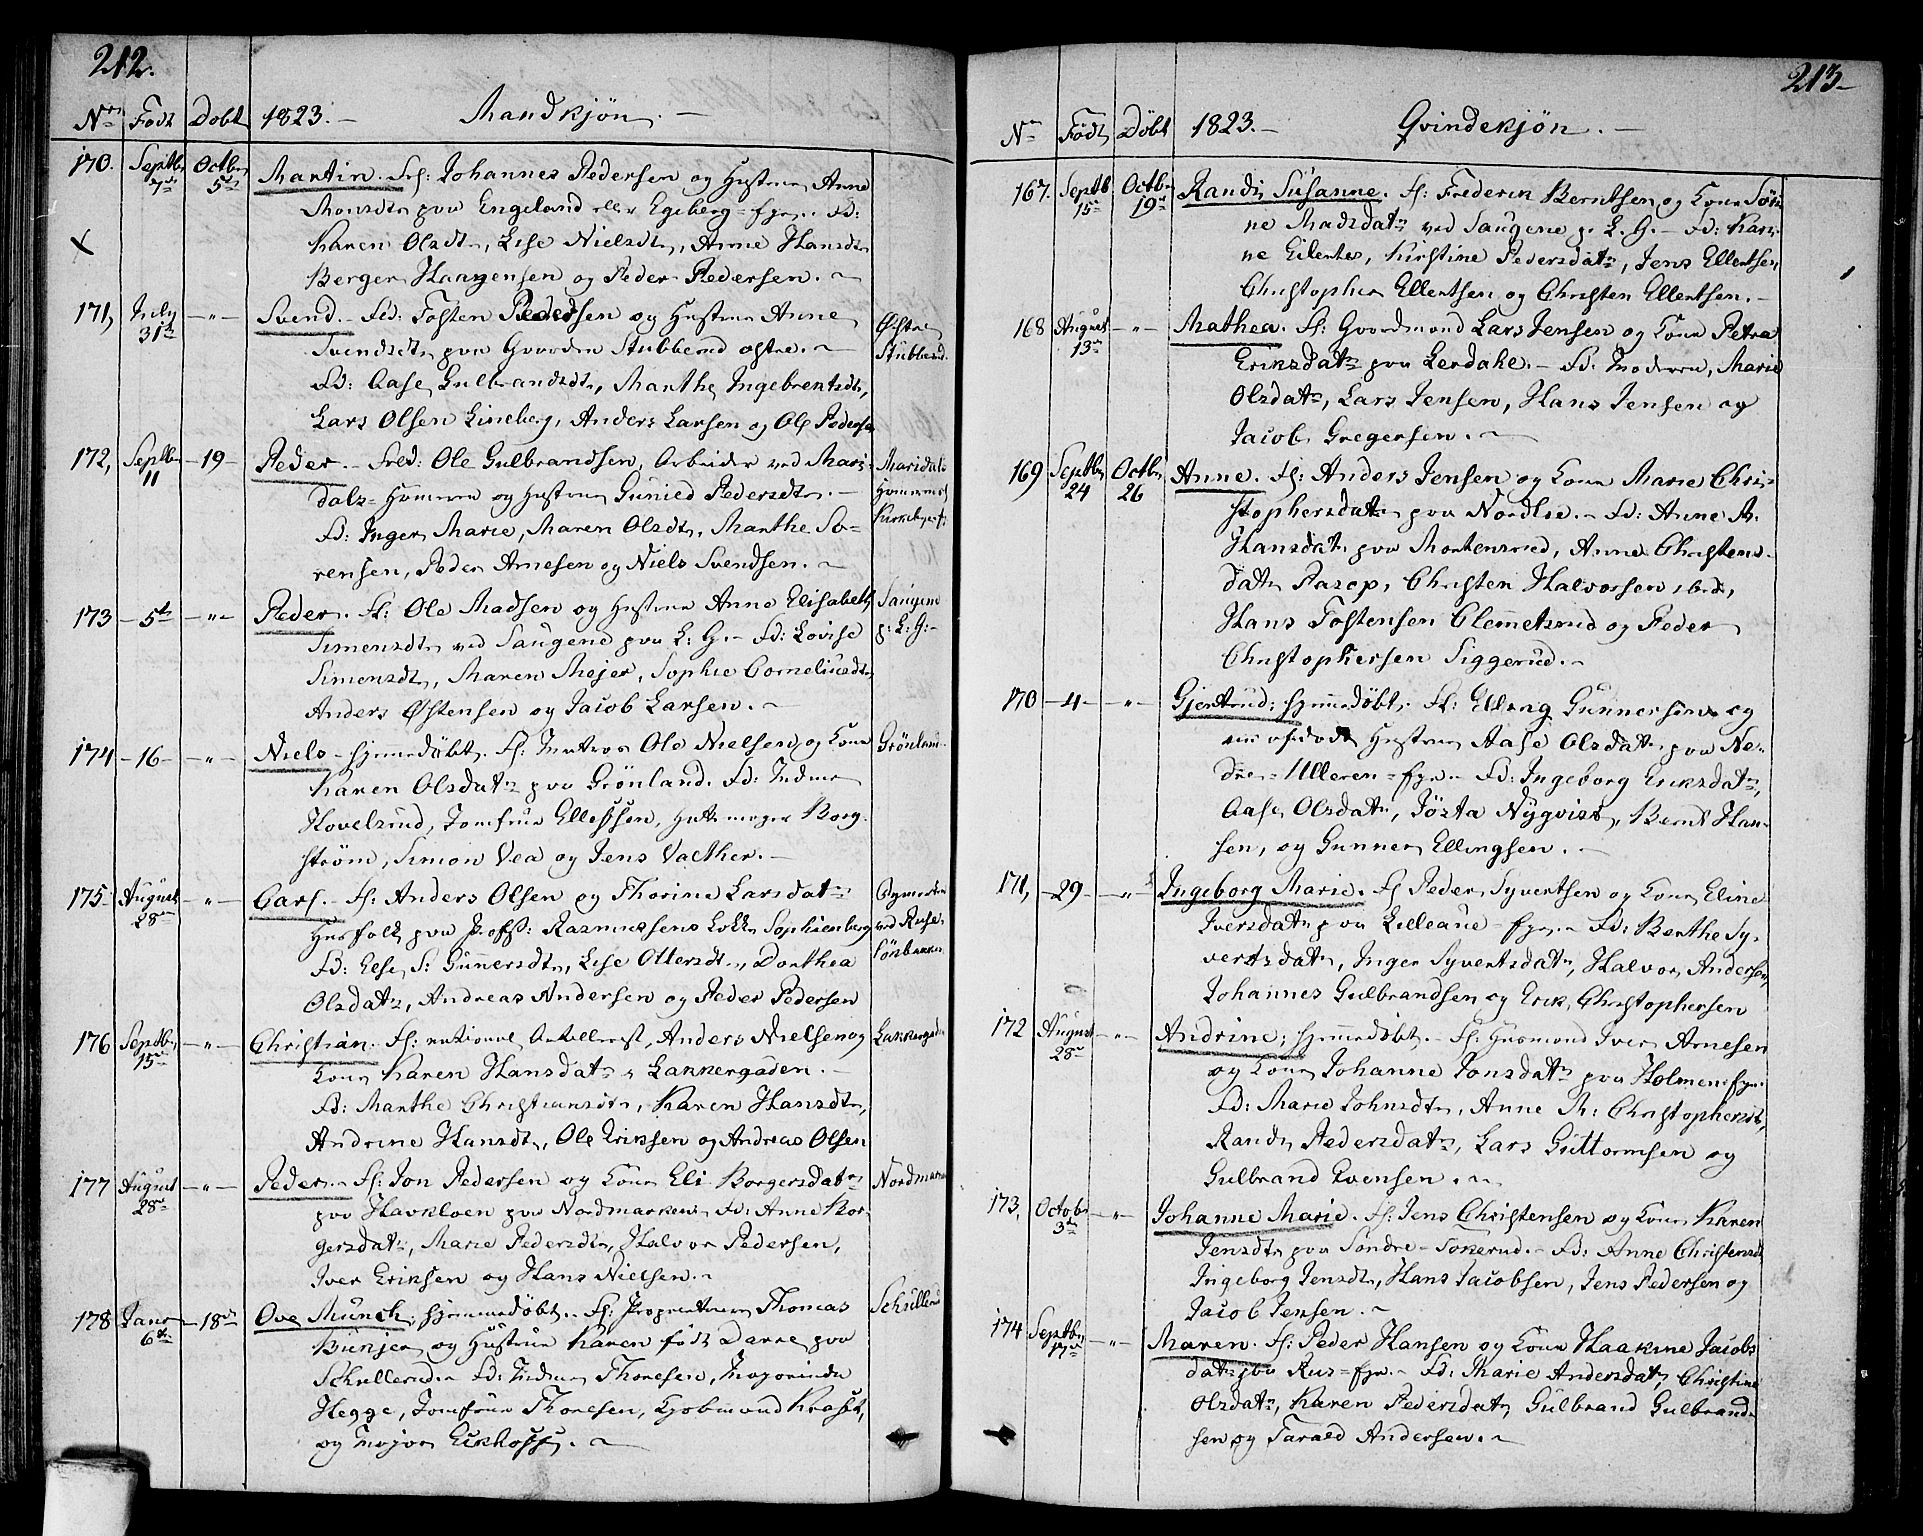 212.
Nr. Födt Döbt 1823. Mandkjön.
170. Septbr 7de Octbr 5te Martin. Johannes Pedersen og Hustrue Anne
paa Engeland eller Egeberg
Karen Olsdtr, Lise Nielsdtr, Anne Hansdtr
Berger Haagensen og Peder Pedersen.
171, July 31te Svend. Tosten Pedersen og Hustrue Anne Østre
Svendsdtr paa Gaarden Stubberud østre. Stubberud.
Fd: Aase Gulbrandsdtr, Marthe Ingebretsdtr,
Lars Olsen Lineberg, Anders Larsen og Ole Pedersen
172, Septbr 11 19 Peder. Ole Gulbrandsen, Arbeider ved Mari-
dals-Hammeren og Hustrue Pedersdtr.
Fd: Inger Marie, Maren Olsdtr, Marthe So-
rensen, Peder Arnesen og Niels Svendsen.
173 5te Peder. Ole Madsen og Hustrue Anne Elisabeth Saugene
Simensdtr ved Saugene paa L: G. Fd: Lovise p: L: G:
Simensdtr, Maren Mejer, Sophie Corneliusdtr,
Anders Østensen og Jacob Larsen.
174 16 Niels hjemmedöbt. Ole Nielsen og Kone Grönland.
Karen Olsdatr paa Grönland. Fd: Madme
Hovelsrud, Jomfrue Ellefssen, Borg-
ström, Simon Vea og Jens Valther.
175 August 28de Carl. Anders Olsen og Thorine Larsdatr
Huusfolk paa Proffs: Rasmussens Lökke Sophienberg
Fd: Else S: Gunnersdtr, Lise Ottersdtr, Dorthea
Olsdatr, Andreas Andersen og Peder Pedersen
176 Septbr 15de Christian. national Artillerist, Anders Nielsen og Lakkergaden
Kone Karen Hansdatr i Lakkergaden.
Fd: Marthe Christiansdtr, Karen Hansdtr,
Andrine Hansdtr, Ole Eriksen og Andreas Olsen
177 August 28de Peder. Jon Pedersen og Kone Eli Borgersdatr Nordmarken
paa Hakkloen paa Nordmarken. Fd: Anne Bor-
gersdatr, Marie Pedersdtr, Halvor Pedersen,
Iver Eriksen og Hans Nielsen.
178 Janr 6te 18de Ove Munch, hjemmedöbt. Proprietair Thomas Schullerud
Bünjer og Hustrue Karen föd Darre paa
Schullerud. Fd: Madme Thoresen, Majorinde
Hegge, Jomfrue Thoresen, Kjöbmand Kraft,
og Major Eckhoff.
213
Nr. Födt Döbt 1823. Qvindekjön.
167. Septbr 15de Octbr 19de Randi Susanne. Frederik Berntsen og Kone Söri-
ne Madsdatr ved Saugene p. L. G. Fd: Kari-
ne Eilertes, Kirstine Pedersdatr, Jens Ellertsen
Christopher Ellertsen og Christen Ellertsen.
168 August 13de Mathea. Gaardmand Lars Jensen og Kone Petra
Eriksdatr paa Lerdahl. Fd. Moderen, Marie
Olsdatr, Lars Jensen, Hans Jensen og
Jacob Gregersen.
169 Septbr 24 Octbr 26 Anne. Anders Jensen og Kone Marie Chri-
stophersdatr paa Nordlie. Fd: Anne M.
Hansdatr paa Mortensrud, Anne Christens-
datr Parop, Christen Halvorsen ibid,
Hans Tostensen Clemmetsrud og Peder
Christophersen Siggerud.
170 4 Gjertrud; hjemmedöbt. Elling Gunnersen og
Hustrue Aase Olsdatr paa Ne-
dre-Ulleren Fd: Ingeborg Eriksdatr,
Aase Olsdatr, Josta Nyqvist, Bernt Han-
sen, og Gunner Ellingsen.
171, 29 Ingeborg Marie. Peder Syvertsen og Kone Eline
Iversdatr paa Lilleaue Fd: Berthe Sy-
vertsdatr, Inger Syvertsdatr, Halvor Andersen,
Johannes Gulbrandsen og Erik Christophersen
172 August 28de Andrine; hjemmedöbt. Huusmand Iver Arnesen
og Kone Johanne Jonsdatr paa Holmen
Fd: Marie Johnsdtr, Anne M: Christophersdtr,
Randi Pedersdatr, Lars Guttormsen og
Gulbrand Evensen.
173, Octobr 3de Johanne Marie. Jens Christensen og Kone Karen
Jensdtr paa Söndre Fd: Anne Christensd
Ingeborg Jensdtr, Hans Jacobsen, Jens Pedersen og
Jacob Jensen.
174 Septbr 17de Maren. Peder Hansen og Kone Haakine Jacobs
datr paa Rus Fd: Marie Andersdatr, Christine
Olsdatr, Karen Pedersdatr, Gulbrand Gulbrand-
sen og Tarald Andersen.